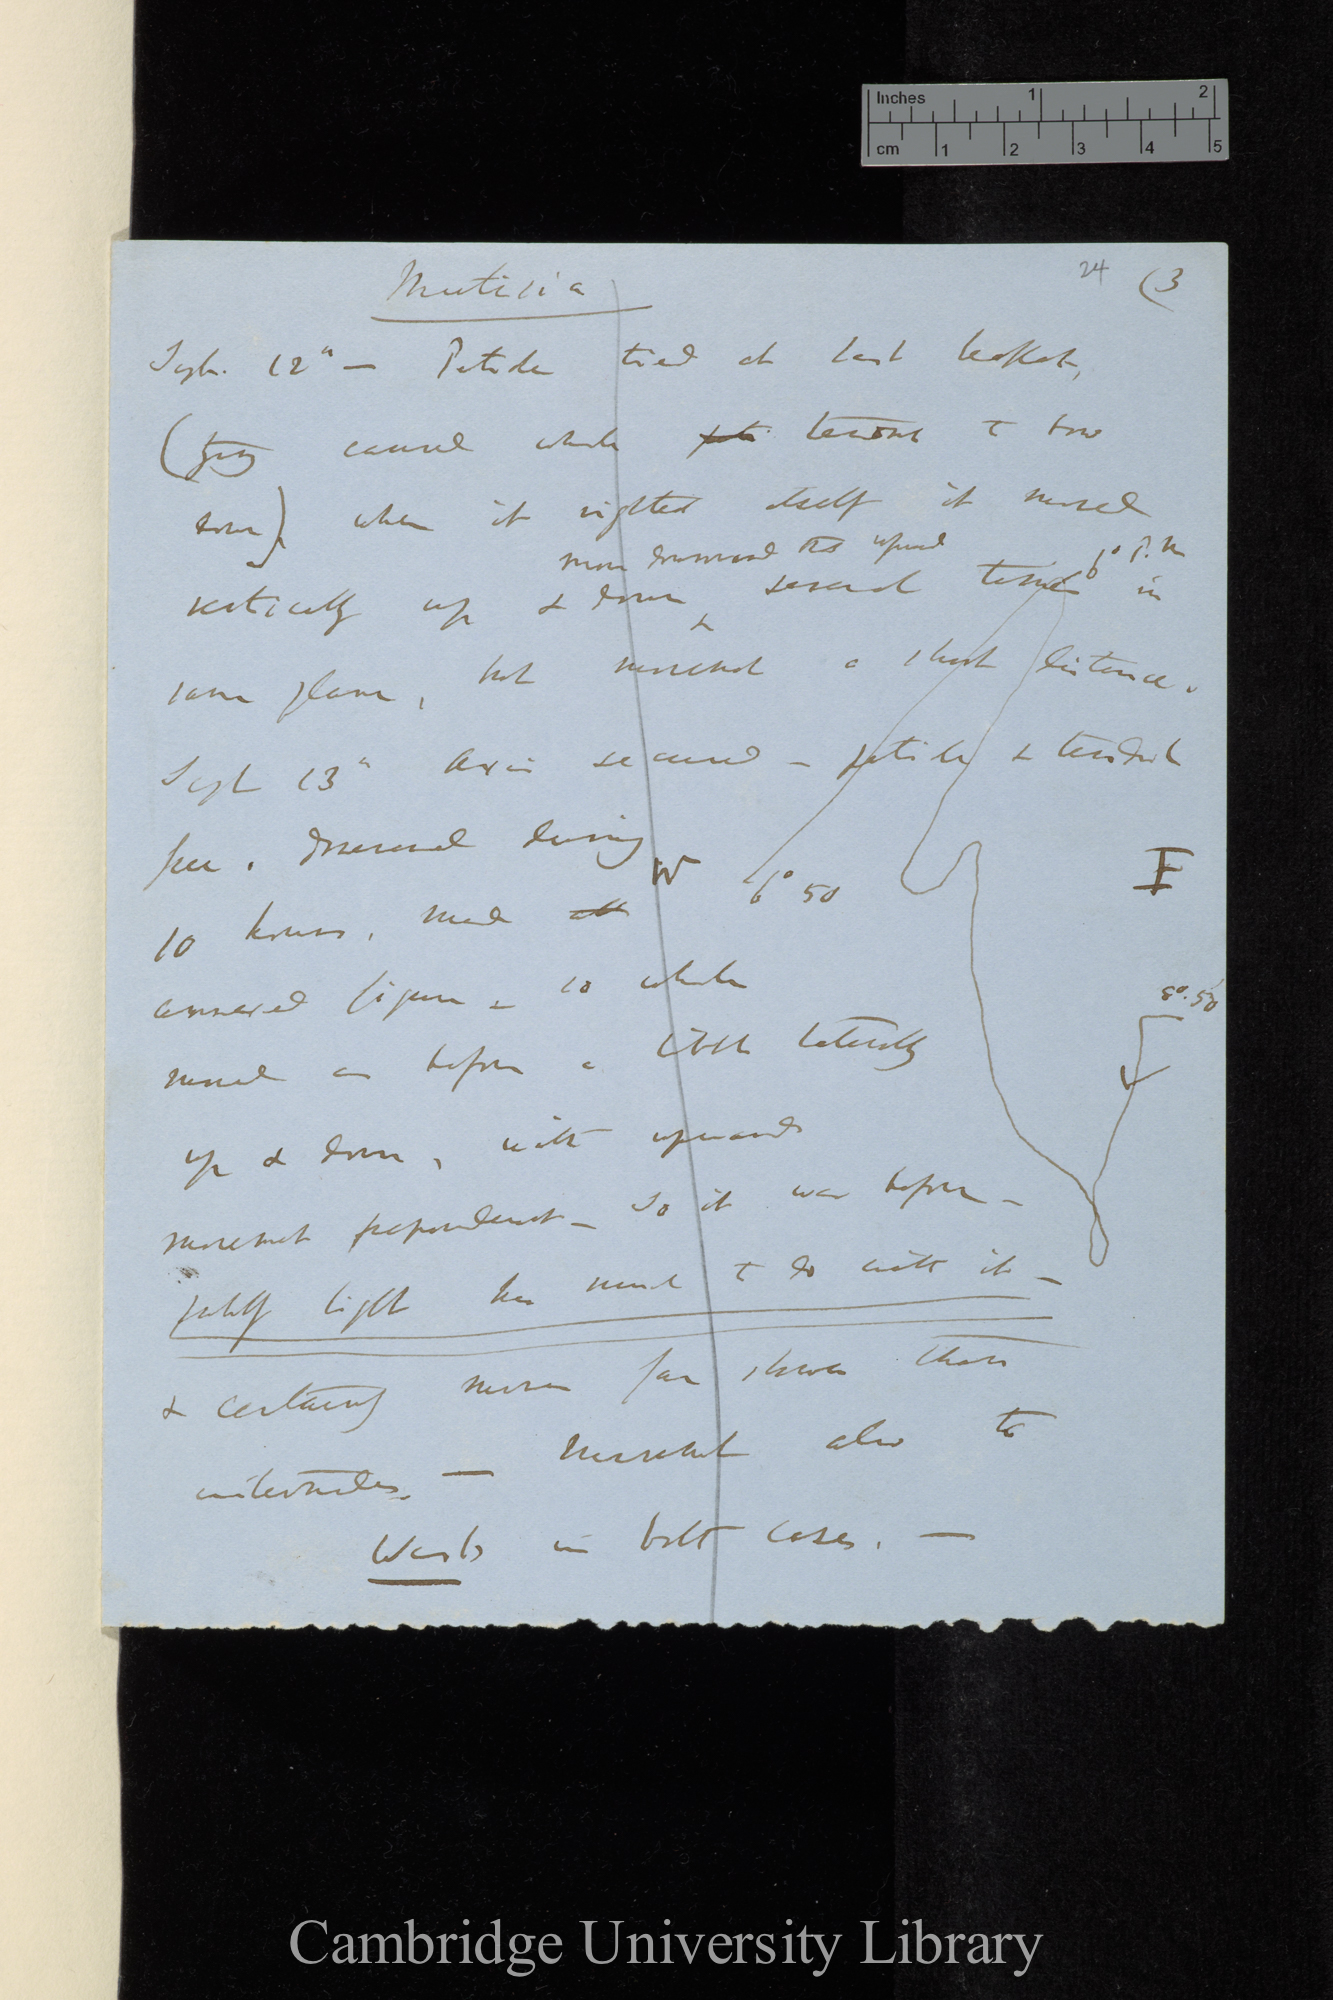 Inches 1 2
cm 1 2 3 4 5
24 (3
Mutisia
Sept. 12th — Petiole tied at last leaflet,
(tying caused whole tendril to bow
down) when it righted itself it moved
more downward than upward
6° P.M
vertically up & down, & several times in
same plane, but movement a short distance.
Sept 13th Axis secured — petiole & tendril
free. Observed during
W 6° 50 E
10 hours, made
annexed figure — so whole
8°. 50'
moved as before a little laterally
up & down, with upwards
movement preponderant — So it was before —
probably light has much to do with it —
& certainly moves far slower than
internodes. — Movement also to
West in both cases. —
Cambridge University Library